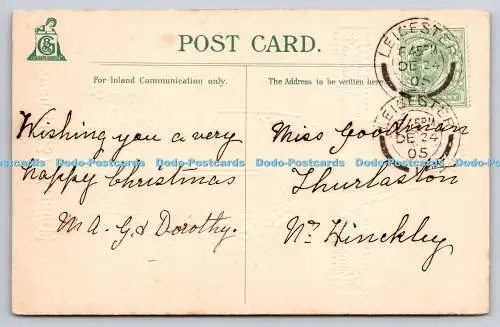 POST CARD.
For Inland Communication only.
The Address to be written here
LEICESTER
6 45PM
DE 24
05
LEICESTER
45PM
DE 24
05
Wishing you a very
happy Christmas
M A. G & Dorothy.
Miss Goodman
Thurlaston
Nr Hinckley
Dodo-Postcards Dodo-Postcards Dodo-Postcards Dodo-Postcards Dodo-Postcards